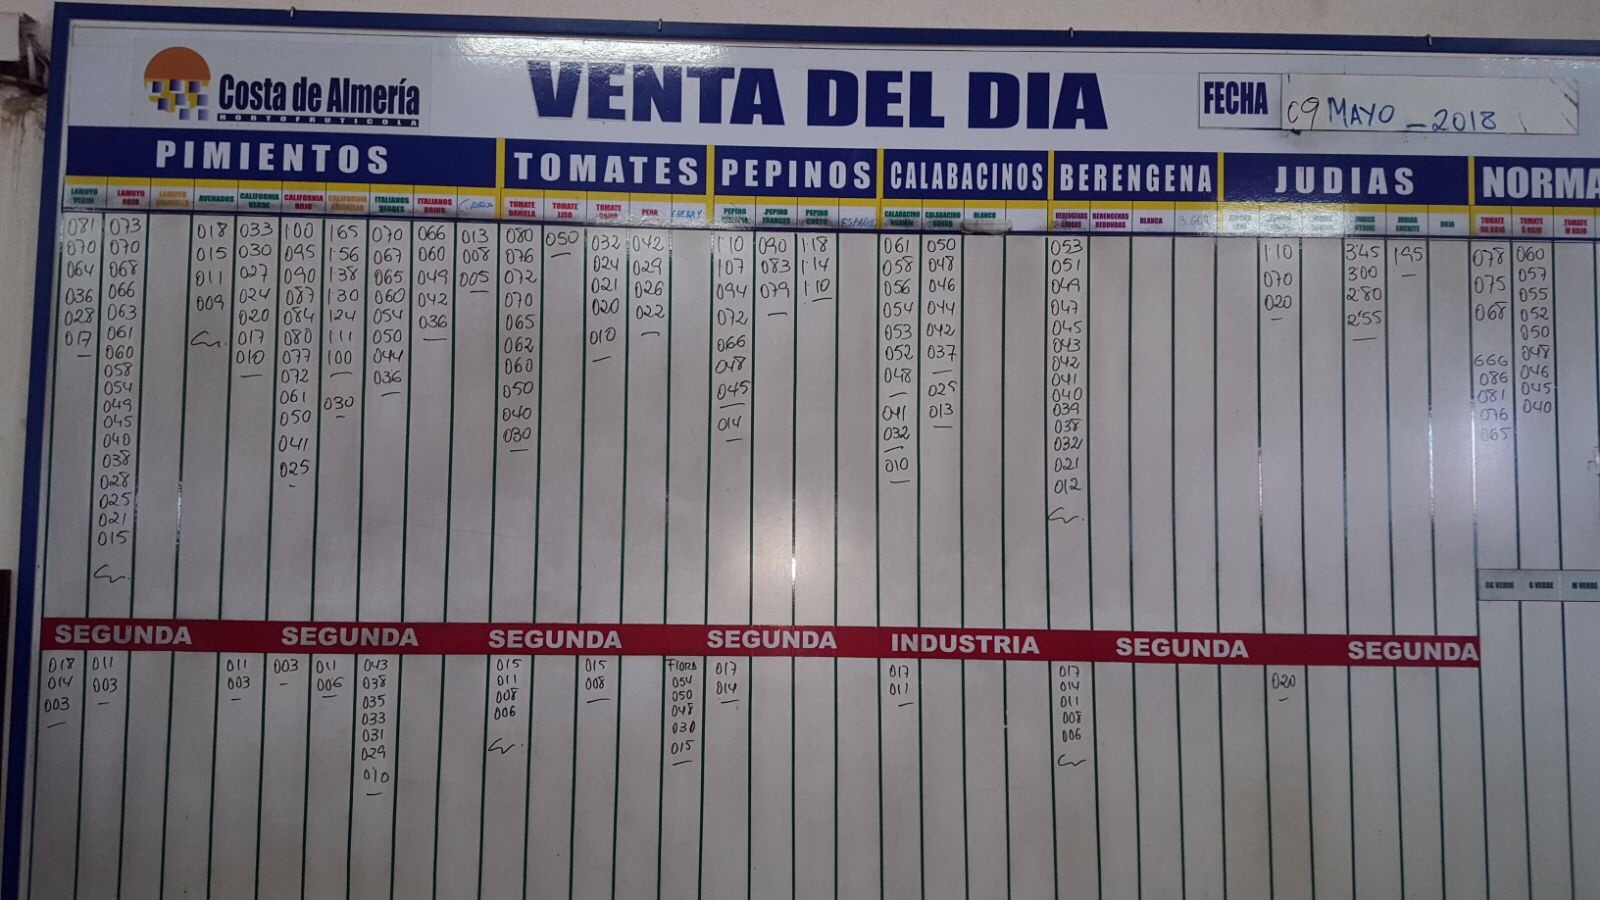 Costa de Almería
HORTOFRUTICOLA
VENTA DEL DIA
FECHA 09 MAYO _ 2018
PIMIENTOS TOMATES PEPINOS CALABACINOS BERENGENA JUDIAS NORMA
LAMUYO VERDE
081
070
064
036
028
017
LAMUYO ROJO
073
070
068
066
063
061
060
058
054
049
045
040
038
028
025
021
015
LAMUYO AMARILLO
AVENADOS
018
015
011
009
CALIFORNIA VERDE
033
030
027
024
020
017
010
CALIFORNIA ROJO
1'00
095
090
087
084
080
077
072
061
050
041
025
CALIFORNIA AMARILLO
1'65
1'56
1'38
1'30
1'24
1'11
1'00
030
ITALIANOS VERDES
070
067
065
060
054
050
044
036
ITALIANOS ROJOS
066
060
049
042
036
013
008
005
TOMATE DANIELA
080
076
072
070
065
062
060
050
040
030
TOMATE LISO
050
TOMATE
032
024
021
020
010
PERA
042
029
026
022
CHERRY
PEPINO
1'10
107
094
072
066
048
045
014
PEPINO FRANCES
090
083
079
PEPINO CORTO
1'18
1'14
1'10
CALABACINO
061
058
056
054
053
052
048
041
032
010
CALABACINO GORDO
050
048
046
044
042
037
025
013
BLANCO
BERENGENAS LARGAS
053
051
049
047
045
043
042
041
040
039
038
032
021
012
BERENGENAS REDONDAS
BLANCA
1'10
070
020
JUDIAS
3'45
300
280
2'55
JUDIAS
1'95
ROJA
TOMATE GG ROJO
078
075
068
666
086
081
076
065
TOMATE G ROJO
060
057
055
052
050
048
046
045
040
TOMATE M ROJO
GG VERDE G VERDE M VERDE
SEGUNDA SEGUNDA SEGUNDA SEGUNDA INDUSTRIA SEGUNDA SEGUNDA
018
014
003
011
003
011
003
003
011
006
043
038
035
033
031
029
010
015
011
008
006
015
008
FLORA
054
050
048
030
015
017
014
017
011
017
014
011
008
006
020